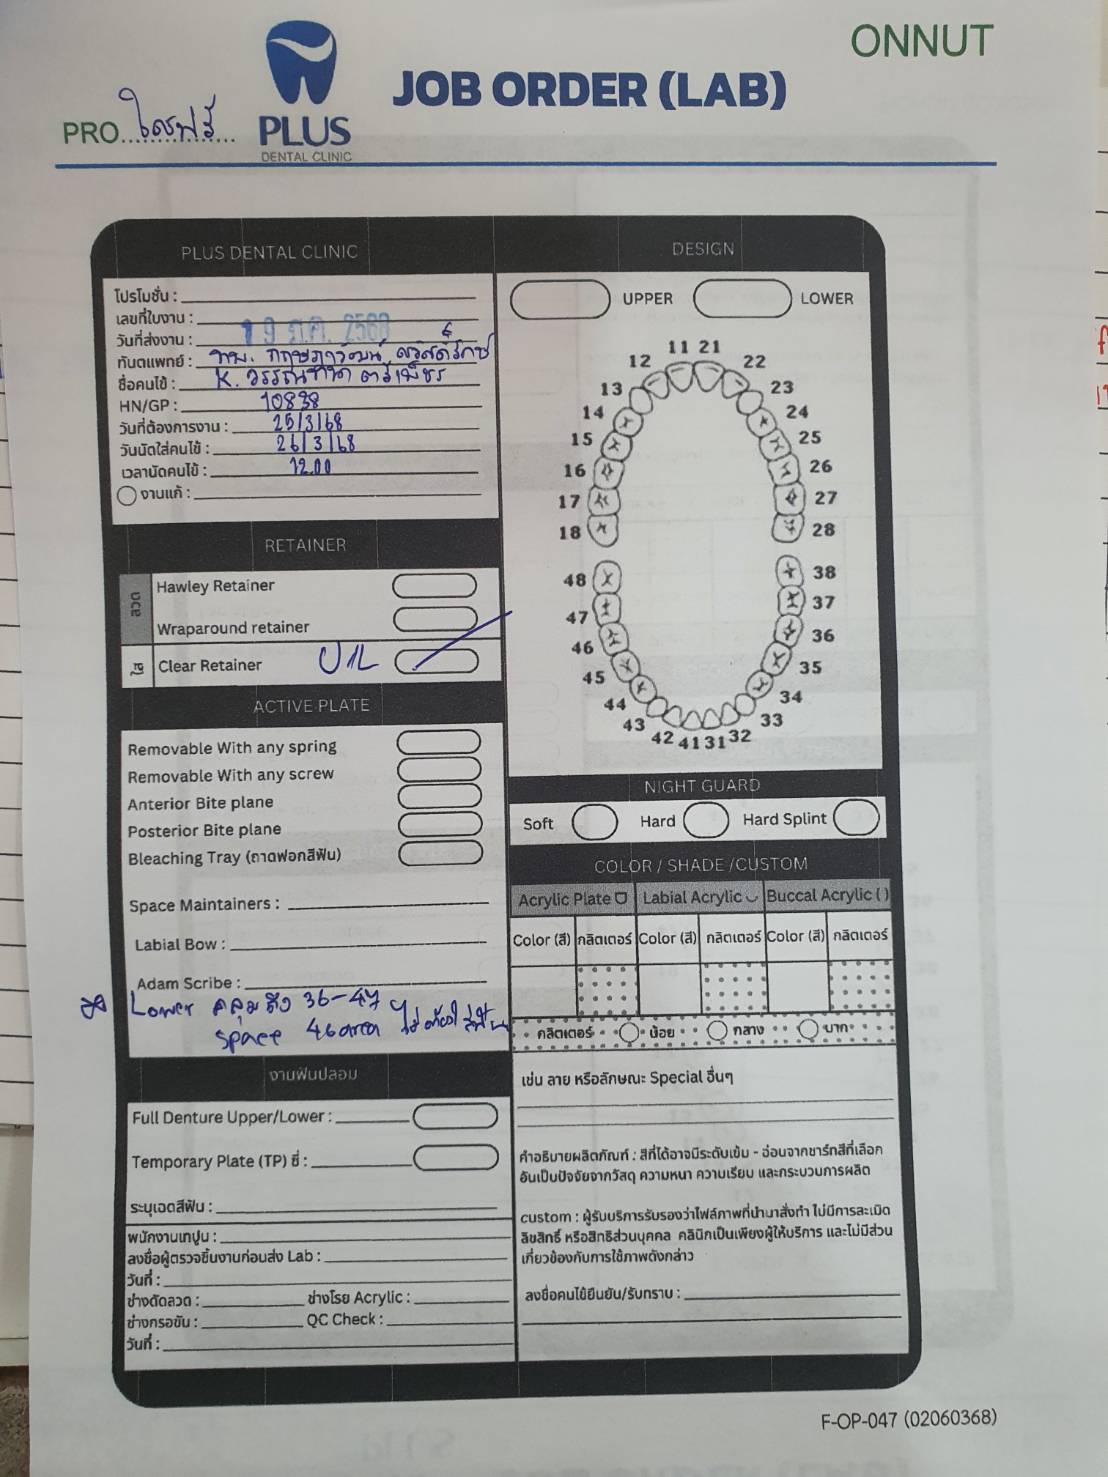 ONNUT
JOB ORDER (LAB)
PRO. ใสฟรี
PLUS
DENTAL CLINIC
PLUS DENTAL CLINIC
โปรโมชั่น :
เลขที่ใบงาน :
วันที่ส่งงาน : 19 2568
ทันตแพทย์ : ทพ.
ชื่อคนไข้ : K.
HN/GP : 10838
วันที่ต้องการงาน : 25/3/68
วันนัดใส่คนไข้ : 26/3/68
เวลานัดคนไข้ : 12.00
งานแก้ :
RETAINER
ลวด
Hawley Retainer
Wraparound retainer
ใส
Clear Retainer U/L
ACTIVE PLATE
Removable With any spring
Removable With any screw
Anterior Bite plane
Posterior Bite plane
Bleaching Tray (ถาดฟอกสีฟัน)
Space Maintainers :
Labial Bow :
Adam Scribe :
Lower คลุมถึง 36-47
space 46 area ไม่ต้องใส่ฟัน
งานฟันปลอม
Full Denture Upper/Lower :
Temporary Plate (TP) ซี่ :
ระบุเฉดสีฟัน :
พนักงานเทปูน :
ลงชื่อผู้ตรวจชิ้นงานก่อนส่ง Lab :
วันที่ :
ช่างดัดลวด : ช่างโรย Acrylic :
ช่างกรอขัน : QC Check :
วันที่ :
DESIGN
UPPER LOWER
11 21
12 22
13 23
14 24
15 25
16 26
17 27
18 28
48 38
47 37
46 36
45 35
44 34
43 33
42 41 31 32
NIGHT GUARD
Soft Hard Hard Splint
COLOR / SHADE /CUSTOM
Acrylic Plate Labial Acrylic Buccal Acrylic ( )
Color (สี) กลิตเตอร์ Color (สี) กลิตเตอร์ Color (สี) กลิตเตอร์
กลิตเตอร์ น้อย กลาง มาก
เช่น ลาย หรือลักษณะ Special อื่นๆ
คำอธิบายผลิตภัณฑ์ : สีที่ได้อาจมีระดับเข้ม - อ่อนจากชาร์ทสีที่เลือก
อันเป็นปัจจัยจากวัสดุ ความหนา ความเรียบ และกระบวนการผลิต
custom : ผู้รับบริการรับรองว่าไฟล์ภาพที่นำมาสั่งทำ ไม่มีการละเมิด
ลิขสิทธิ์ หรือสิทธิส่วนบุคคล คลินิกเป็นเพียงผู้ให้บริการ และไม่มีส่วน
เกี่ยวข้องกับการใช้ภาพดังกล่าว
ลงชื่อคนไข้ยืนยัน/รับทราบ :
F-OP-047 (02060368)